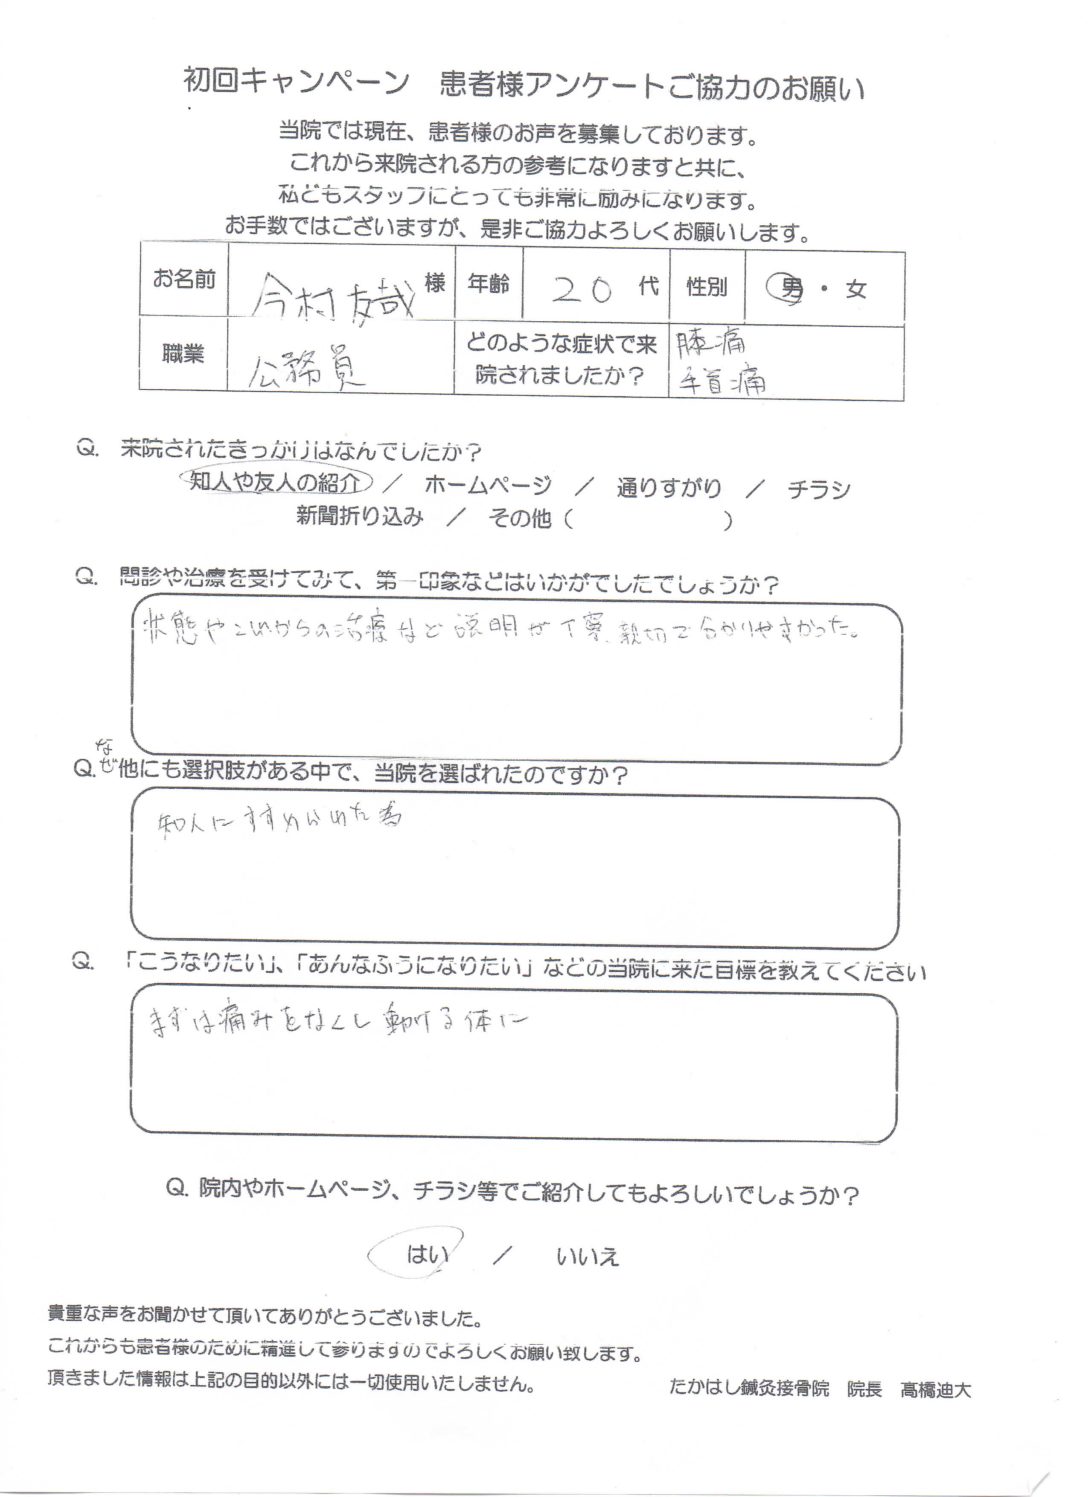 初回キャンペーン 患者様アンケートご協力のお願い
当院では現在、患者様のお声を募集しております。
これから来院される方の参考になりますと共に、
私どもスタッフにとっても非常に励みになります。
お手数ではございますが、是非ご協力よろしくお願いします。
お名前 今村友哉 様 年齢 20 代 性別 男・女
職業 公務員 どのような症状で来院されましたか? 膝痛 手首痛
Q. 来院されたきっかけはなんでしたか?
知人や友人の紹介 / ホームページ / 通りすがり / チラシ
新聞折り込み / その他( )
Q. 問診や治療を受けてみて、第一印象などはいかがでしたでしょうか?
状態やこれからの治療など説明が丁寧、親切で分かりやすかった。
Q.なぜ他にも選択肢がある中で、当院を選ばれたのですか?
知人にすすめられた為
Q. 「こうなりたい」、「あんなふうになりたい」などの当院に来た目標を教えてください
まずは痛みをなくし動ける体に
Q. 院内やホームページ、チラシ等でご紹介してもよろしいでしょうか?
はい / いいえ
貴重な声をお聞かせて頂いてありがとうございました。
これからも患者様のために精進して参りますのでよろしくお願い致します。
頂きました情報は上記の目的以外には一切使用いたしません。
たかはし鍼灸接骨院 院長 髙橋迪大